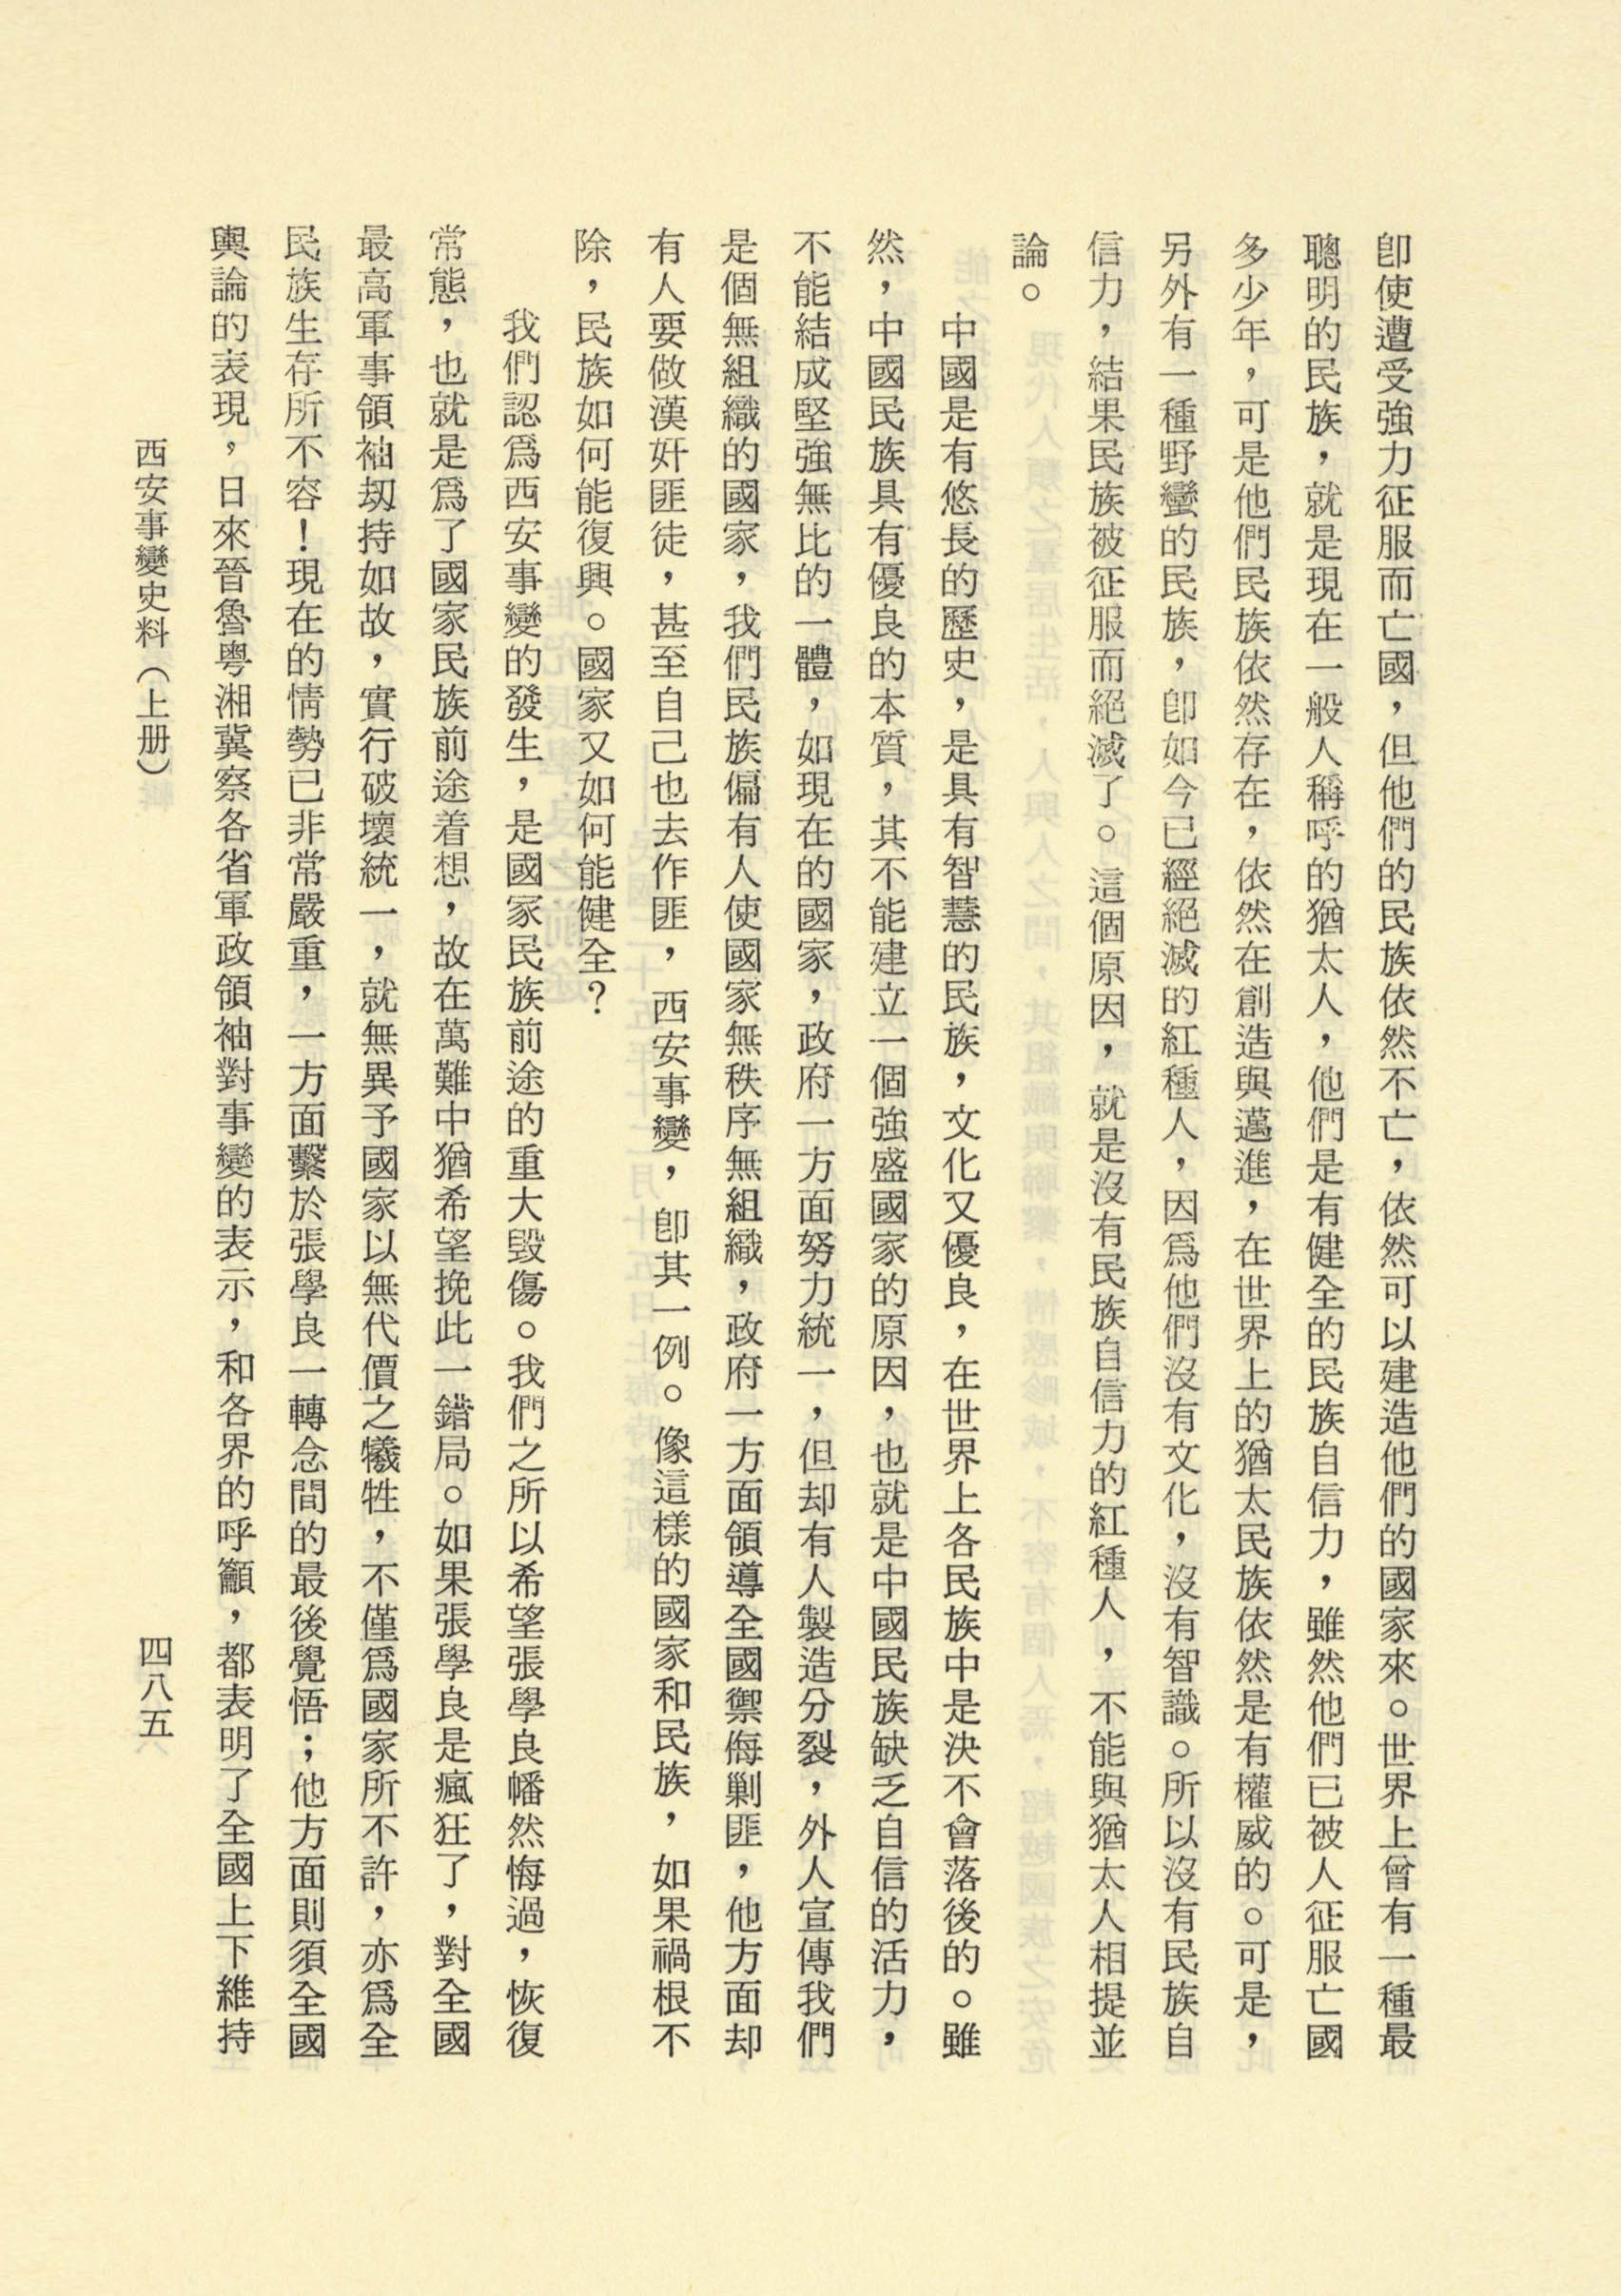 卽使遭受強力征服而亡國，但他們的民族依然不亡，依然可以建造他們的國家來。世界上曾有一種最
聰明的民族，就是現在一般人稱呼的猶太人，他們是有健全的民族自信力，雖然他們已被人征服亡國
多少年，可是他們民族依然存在，依然在創造與邁進，在世界上的猶太民族依然是有權威的。可是，
另外有一種野蠻的民族，卽如今已經絕滅的紅種人，因爲他們沒有文化，沒有智識。所以沒有民族自
信力，結果民族被征服而絕滅了。這個原因，就是沒有民族自信力的紅種人，不能與猶太人相提並
論。
中國是有悠長的歷史，是具有智慧的民族，文化又優良，在世界上各民族中是決不會落後的。雖
然，中國民族具有優良的本質，其不能建立一個強盛國家的原因，也就是中國民族缺乏自信的活力，
不能結成堅強無比的一體，如現在的國家，政府一方面努力統一，但却有人製造分裂，外人宣傳我們
是個無組織的國家，我們民族偏有人使國家無秩序無組織，政府一方面領導全國禦侮剿匪，他方面却
有人要做漢奸匪徒，甚至自己也去作匪，西安事變，卽其一例。像這樣的國家和民族，如果禍根不
除，民族如何能復興。國家又如何能健全？
我們認爲西安事變的發生，是國家民族前途的重大毀傷。我們之所以希望張學良幡然悔過，恢復
常態，也就是爲了國家民族前途着想，故在萬難中猶希望挽此一錯局。如果張學良是瘋狂了，對全國
最高軍事領袖刼持如故，實行破壞統一，就無異予國家以無代價之犧牲，不僅爲國家所不許，亦爲全
民族生存所不容！現在的情勢已非常嚴重，一方面繫於張學良一轉念間的最後覺悟；他方面則須全國
輿論的表現，日來晉魯粵湘冀察各省軍政領袖對事變的表示，和各界的呼籲，都表明了全國上下維持
西安事變史料（上册）
四八五